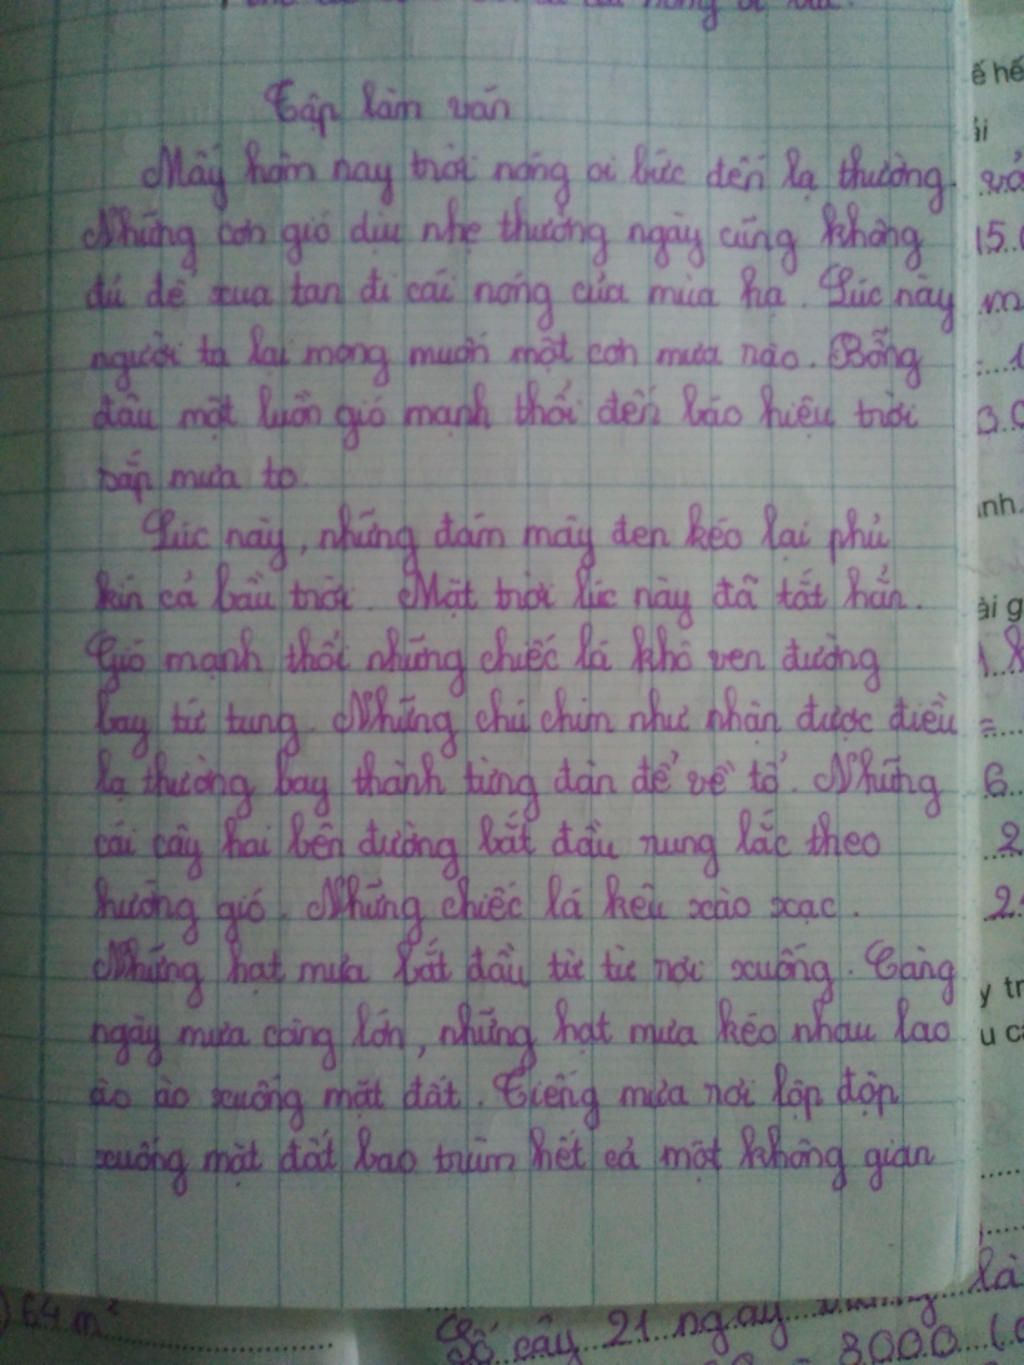 Tập làm văn
Mấy hôm nay trời nóng oi bức đến lạ thường.
Những cơn gió dịu nhẹ thường ngày cũng không
đủ để xua tan đi cái nóng của mùa hạ. Lúc này
người ta lại mong muốn một cơn mưa rào. Bỗng
đâu một luồn gió mạnh thổi đến báo hiệu trời
sắp mưa to.
Lúc này, những đám mây đen kéo lại phủ
kín cả bầu trời. Mặt trời lúc này đã tắt hẳn.
Gió mạnh thổi những chiếc lá khô ven đường
bay tứ tung. Những chú chim như nhận được điều
lạ thường bay thành từng đàn để về tổ. Những
cái cây hai bên đường bắt đầu rung lắc theo
hướng gió. Những chiếc lá kêu xào xạc.
Những hạt mưa bắt đầu từ từ rơi xuống. Càng
ngày mưa càng lớn, những hạt mưa kéo nhau lao
ào ào xuống mặt đất. Tiếng mưa rơi lộp độp
xuống mặt đất bao trùm hết cả một không gian
64 m²
Số cây 21 ngày là
8000